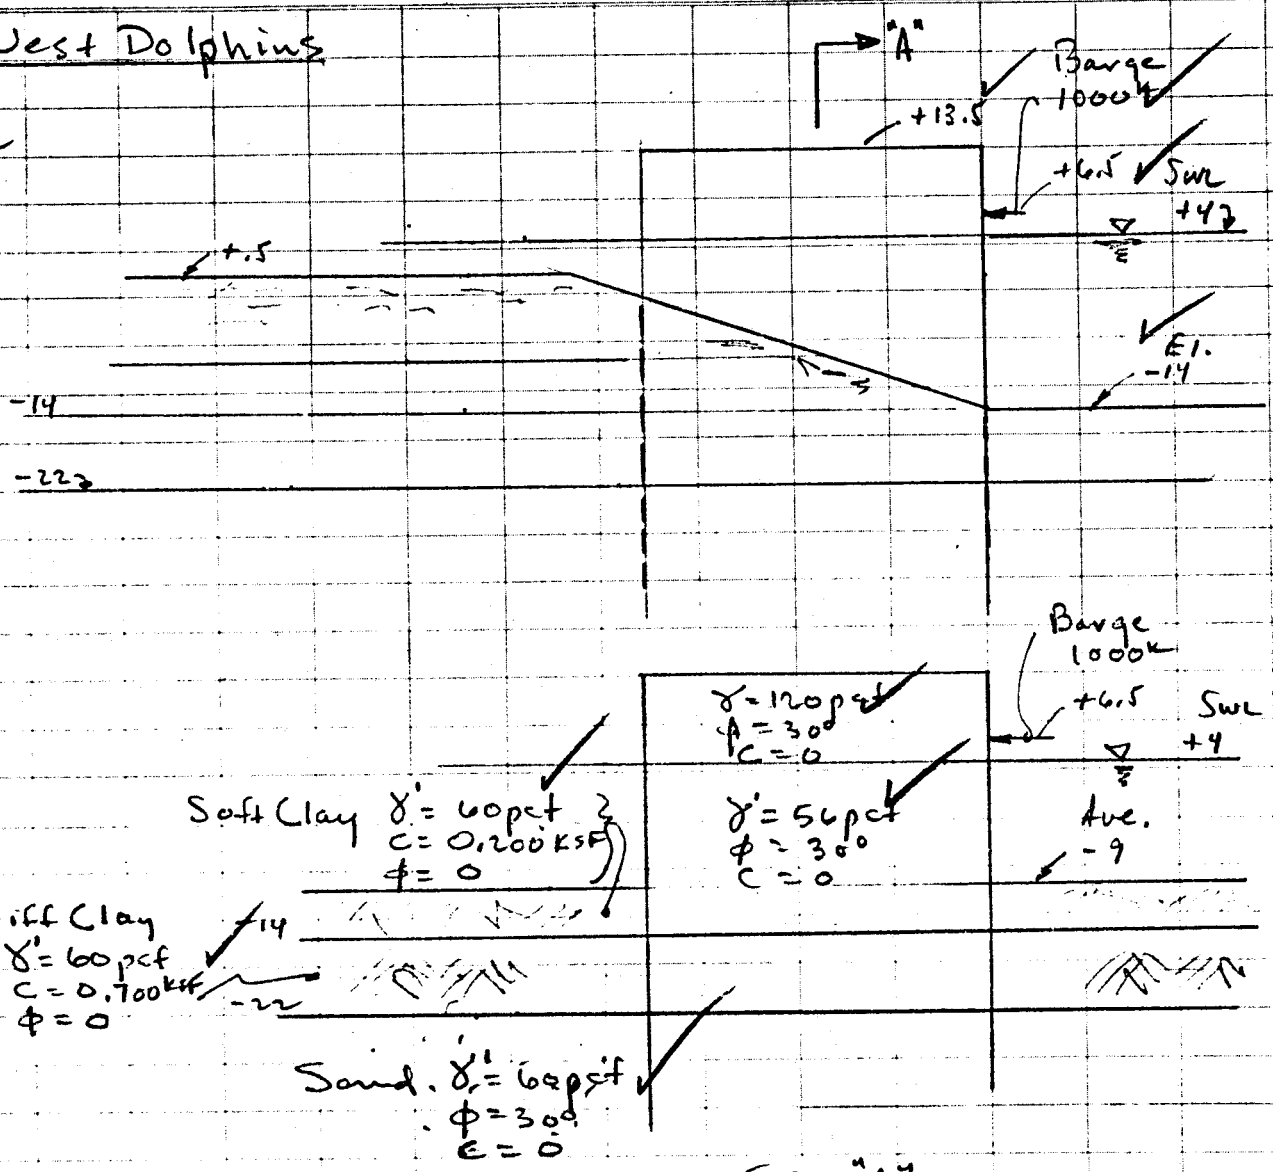 West Dolphins
"A"
Barge
1000k
+13.5
+6.5
SWL
+4
+.5
El.
-14
-5
-14
-22
Barge
1000k
+6.5
SWL
+4
γ = 120 pcf
φ = 30°
C = 0
Soft Clay γ' = 60 pcf
C = 0.200 KSF
φ = 0
γ' = 56 pcf
φ = 30°
C = 0
Ave.
-9
iff Clay
γ' = 60 pcf
C = 0.700 KSF
φ = 0
-14
-22
Sand. γ' = 60 pcf
φ = 30°
C = 0
"A"